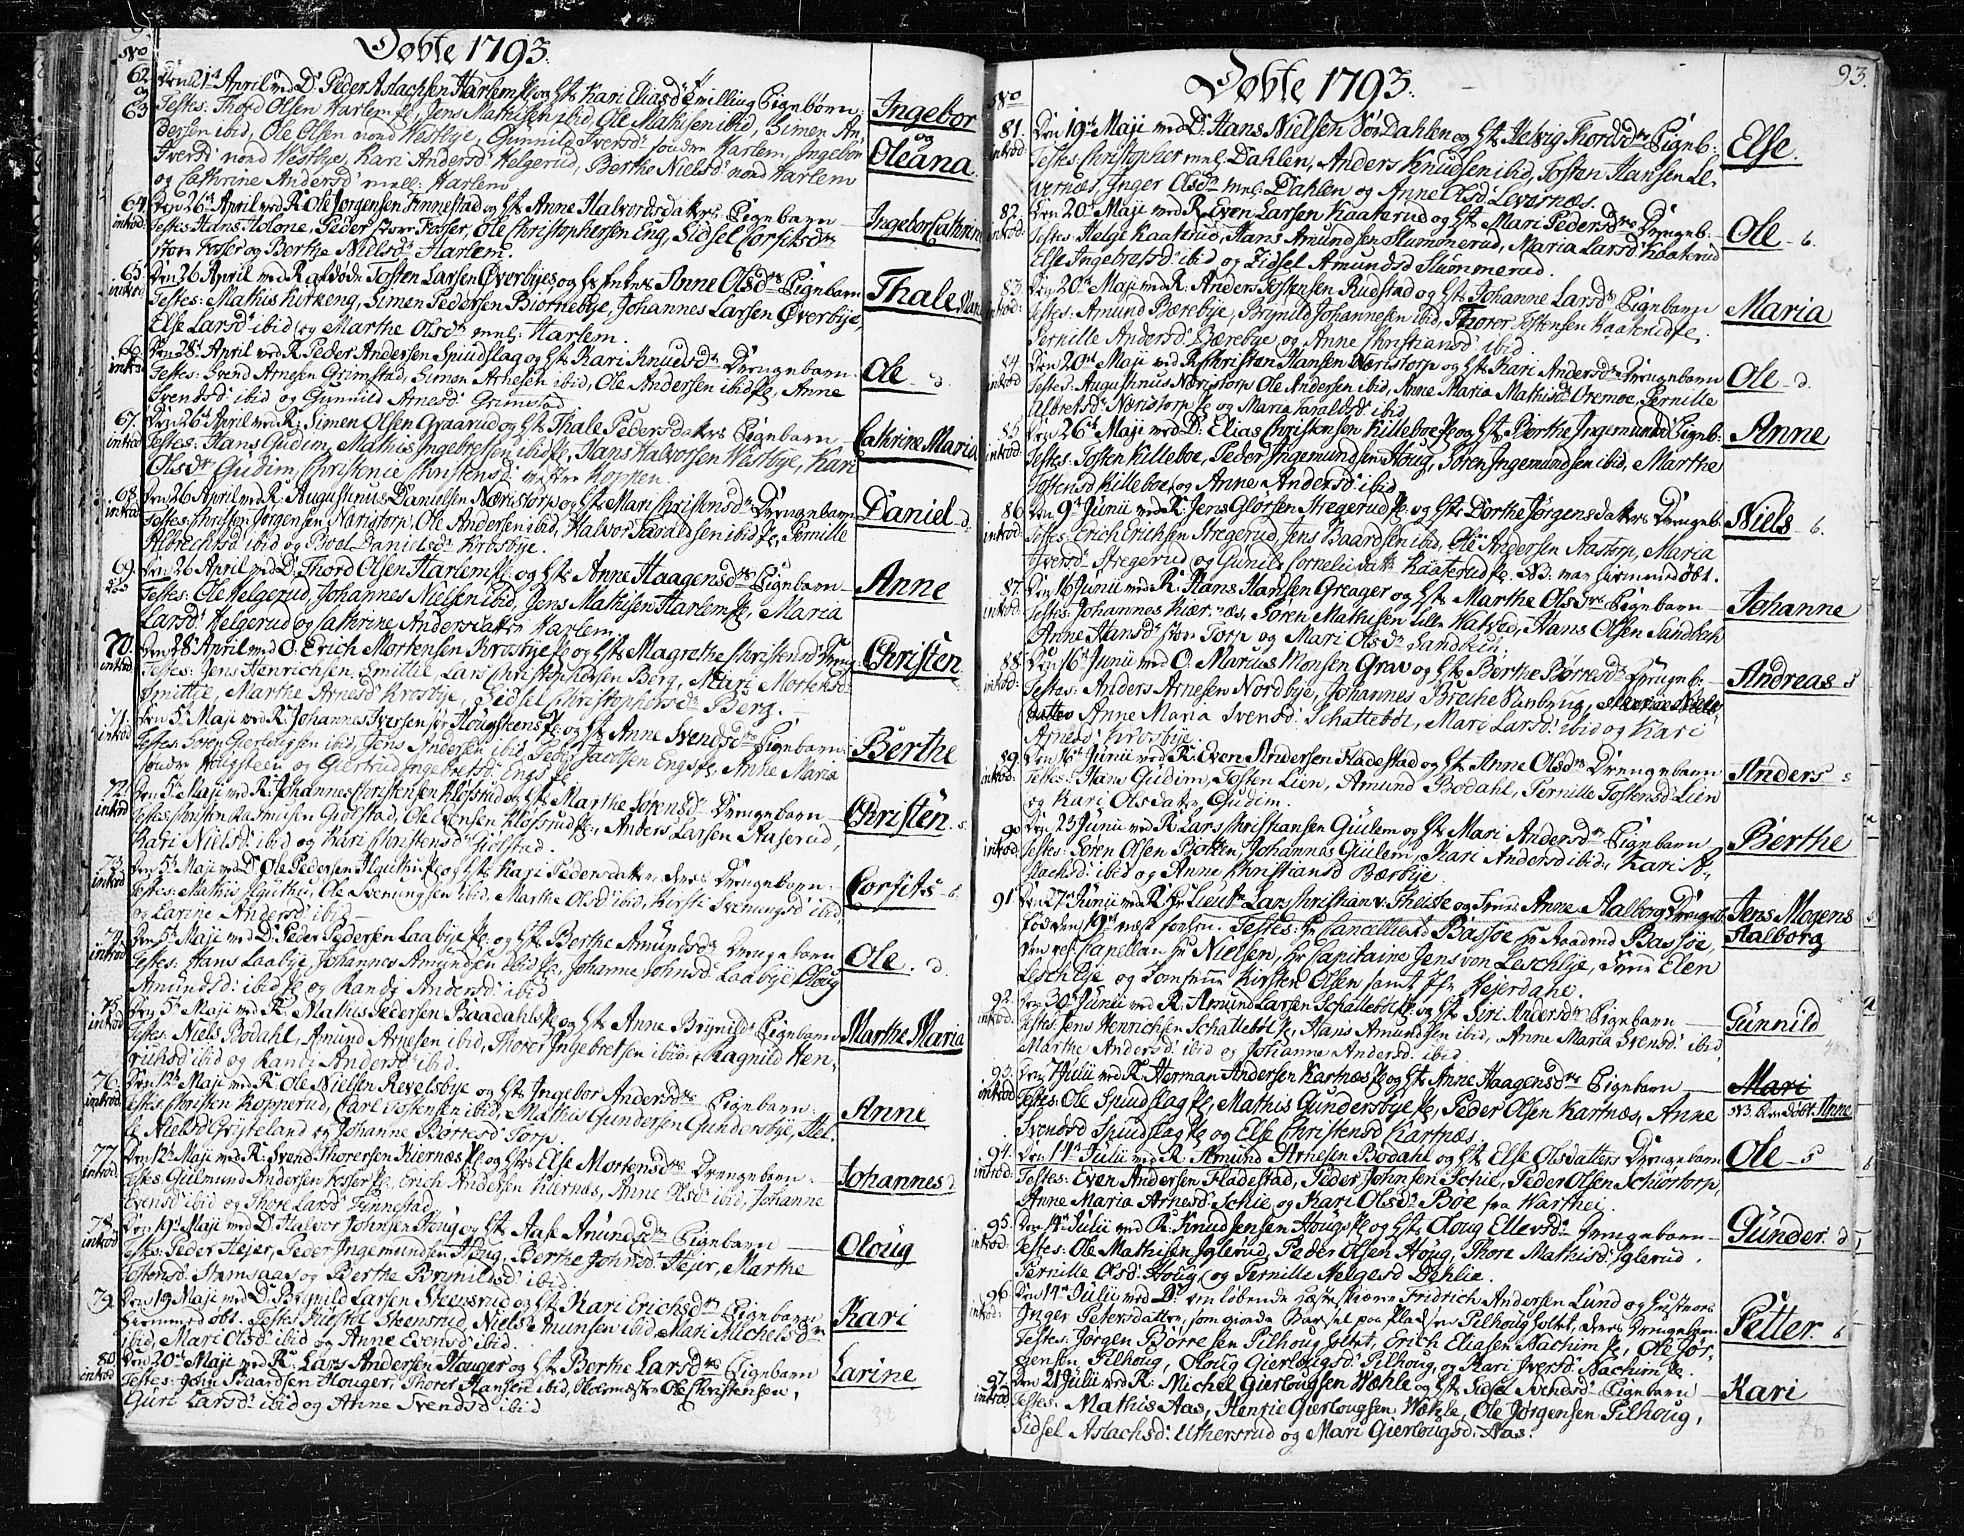 Døbte 1793.
No
62 Den 21de April med D. Peder Aslachsen Harlem og Kari Eliasd Tvilling Pigebørn
og
63 Testes: Thord Olsen Harlem, Jens Mathisen ibid, Ole Mathisen ibid, Simen An-
dersen ibid, Ole Olsen nord Westbye, Gunnild Iversd søndre Harlem, Ingebor
Iversd nord Westbye, Kari Andersd Helgerud, Berthe Nielsd nord Harlem
og Cathrine Andersd mell: Harlem
Ingebor
og
Oleana
64 Den 26de April med R. Ole Jørgensen Finnestad og Anne Halvorsdaters Pigebarn
introd: Testes Hans Holone, Peder store Fosser, Ole Christophersen Eng, Sidsel Corfitsd
store Fosser og Berthe Nielsd Harlem.
Ingebor Cathrine
65 Den 26 April med R. afdøde Tosten Larsen Øverbyes og Anne Olsd Pigebarn
introd Testes: Mathis Kirkeng, Simen Pedersen Biørnebye, Johannes Larsen Øverbye
Else Larsd ibid og Marthe Olsd mell: Harlem.
Thale Mari
66 Den 28 April med R. Peder Andersen Spiudslag og Kari Knudsd Drengebarn
introd Testes: Svend Arnesen Grimstad, Simen Arnesen ibid, Ole Andersen ibid, Anne
Svendsd ibid og Gunnild Arnesd Grimstad
Ole d.
67. Den 26 April med R. Simen Olsen Graarud og Thale Pedersdaters Pigebarn
introd Testes: Hans Gudim, Mathis Ingebretsen ibid, Hans Halvorsen Westbye, Kari
Olsd Gudim, Christense Christensd Koppen.
Cathrine Maria
68. Den 26 April med R. Augustinus Danielsen Næristorp og Mari Christensd Drengebarn
introd Testes: Christen Jørgensen Næristorp, Ole Andersen ibid, Halvor Taraldsen ibid, Pernille
Albrechtsd ibid og Bodel Danielsd Krosbye.
Daniel d.
69. Den 26 April med D. Thord Olsen Harlem og Anne Haagensd Pigebarn
Testes: Ole Helgerud, Johannes Nielsen ibid, Jens Mathisen Harlem, Maria
Larsd Helgerud og Cathrine Andersdater Harlem
Anne
70. Den 28 April med O. Erich Mortensen Krosbye og Magrethe Christensd
introd Testes: Jens Henrichsen Smittie, Lars Christophersen Berg, Mari Mortensd
Smittie, Marthe Arnesd Krosbye, Sidsel Christophersd Berg.
Christen
71. Den 5 Maji med R. Johannes Iversen Hougsteens og Anne Svendsd Pigebarn
introd Testes: Søren Gierlougsen ibid, Jens Andersen ibid, Peder Jacobsen Engs, Anne Maria
søndre Hougsteen og Giertrud Ingebretsd Engs
Berthe
72. Den 5 Maji med R. Johannes Christensen Klofsrud og Marthe Sørensd Drengebarn
introd Testes: Christen Rasmusen Giølstad, Ole Evensen Klofsrud, Anders Larsen Haserud,
Kari Nielsd ibid og Kari Christensd Giølstad.
Christen s.
73. Den 5 Maji med D. Ole Pedersen Aguthus og Kari Pedersdater, deres Drengebarn
introd Testes: Mathis Aguthus, Ole Svenungsen ibid, Marthe Olsd ibid, Kirsti Svenungsd ibid
og Larine Andersd ibid
Corfits b.
74. Den 5 Maji med D. Peder Pedersen Laabye og Berthe Amundsd Drengebarn
introd Testes: Hans Laabye, Johannes Amundsen ibid, Johanne Johnsd Laabye, Oloug
Amundsd ibid og Randi Andersd ibid
Ole. d.
75. Den 5 Maji med R. Mathis Pedersen Baadahls og Anne Brynilds Pigebarn
introd Testes: Niels Bodahl, Amund Arnesen ibid, Thorer Ingebretsen ibid, Ragnild Hen-
richsd ibid og Randi Andersd ibid.
Marthe Maria
76. Den 12 Maji med R. Ole Nielsen Revelsbye og Ingebor Andersd Pigebarn.
introd: Testes Christen Kopperud, Carl Tostensen ibid, Mathis Gundersen Gundersbye, Hel-
le Nielsd Gryteland og Johanne Børresd Torp.
Anne
77. Den 12 Maji med R. Svend Thoresen Kiernæs og Else Mortensd Drengebarn
introd Testes Gulmund Andersen Fosser, Erich Andersen Kiernæs, Anne Olsd ibid, Johanne
Evensd ibid og Thore Larsd Finnestad
Johannes d
78. Den 19 Maji med D. Halvor Johnsen Houg og Aase Amundsd Pigebarn
introd Testes: Peder Hejer, Peder Ingemundsen Houg, Berthe Johnsd Hejer, Marthe
Tostensd Stomsaas og Berthe Brynildsd ibid.
Oloug
79. Den 19 Maji med D. Brynild Larsen Steensrud og Kari Erichsd Pigebarn
hiemmedøbt. Testes Kiøstol Steensrud, Niels Amunsen ibid, Mari Michelsd
ibid, Mari Olsd ibid og Anne Evensd ibid.
Kari
80 Den 20 Maji med R. Lars Andersen Houger og Berthe Larsd Pigebarn
introd Testes: John Baardsen Houger, Thorer Hansen ibid, Skolemester Ole Christensen,
Guri Larsd ibid og Anne Svendsd ibid
Larine
93.
Døbte 1793.
No
81. Den 19 Maji med D. Hans Nielsen SørDahlen og Helvig Thordsd Pigeb:
introd: Testes Christopher mel: Dahlen, Anders Knudsen ibid, Tosten Hansen Le-
vernæs, Inger Olsd mel: Dahlen og Anne Olsd Levernæs.
Else.
82. Den 20 Maji med R. Even Larsen Kaaterud og Mari Pedersd Drengeb.
introd: Testes: Helge Kaaterud, Hans Amundsen Slummerud, Maria Larsd Kaaterud
Else Ingebretsd ibid og Sidsel Amundsd Slummerud.
Ole b.
83 Den 20 Maji med R. Anders Tostensen Rudstad og Johanne Larsd Pigebarn
introd: Testes: Amund Bærebye, Brynild Johannesen ibid, Thorer Tostensen Kaaterud,
Pernille Andersd Bærebye og Anne Christiansd ibid
Maria
84. Den 20 Maji med R. Christen Hansen Næristorp og Kari Andersd Drengebarn
introd Testes: Augustinus Næristorp, Ole Andersen ibid, Anne Maria Mathisd Oremoe, Pernille
Albretsd Næristorp og Maria Taraldsd ibid
Ole d.
85 Den 26 Maji med D. Elias Christensen Killeboe og Berthe Ingemundsd Pigeb:
introd: Testes: Tosten Killeboe, Peder Ingemundsen Houg, Søren Ingemundsen ibid, Marthe
Tostensd Killeboe og Anne Andersd ibid
Anne
86 Den 9 Junii med R. Jens Glørsen Stregerud og Dorthe Jørgensdaters Drengeb.
introd Testes Erich Erichsen Stregerud, Jens Baardsen ibid, Ole Andersen Aastorp, Maria
Iversd Stregerud og Gunild Corneliidatter Kaaterud. NB: var hiemmedøbt.
Niels b.
87. Den 16 Junii med R. Hans Hansen Greager og Marthe Olsd Pigebarn
introd: Testes: Johannes Kiærnæs, Søren Mathisen lille Watved, Hans Olsen Sandbech
Anne Hansd store Torp og Mari Olsd Sandbech
Johanne
88. Den 16 Junii med O. Marius Monsen Grav og Berthe Børresd Drengeb.
introd: Testes: Anders Arnesen Nordbye, Johannes Brethe Sanbrug,
Anne Maria Svensd Schattebøl, Mari Larsd ibid og Kari
Arnesd Krosbye.
Andreas s
89. Den 16 Junii med R. Even Andersen Fladestad og Anne Olsd Drengebarn
introd: Testes: Hans Gudim, Tosten Lien, Amund Bodahl, Pernille Tostensd Lien
og Kari Olsdater Gudim.
Anders s
90 Den 23 Junii med R. Lars Christiansen Gulem og Mari Andersd Pigebarn
introd: Testes: Søren Olsen Botten, Johannes Gulem, Kari Andersd ibid, Kari A-
slachsd ibid og Anne Christiansd Bærbye.
Berthe
91 Den 27 Junii med R. Hr Lieutn Lars Christian v: Theiste og Frue Anne Aalborg Drengeb
fød den 19 næst forhen. Testes: Hr Cancellieraad Bassøe, Hr Raadmd Bassøe,
den res: Capellan Hr Nielsen, Hr Capitaine Jens von Leschlye, Frue Elen
Leschlye og Jomfrue Kirsten Olsen samt Jfr Hejerdahl.
Jens Mogens
Aalborg
92. Den 30 Junii med R. Amund Larsen Schattebøl og Siri Andersd Pigebarn
introd: Testes Jens Henrichsen Schattebøl, Hans Amundsen ibid, Anne Maria Svensd ibid,
Marthe Andersd ibid og Johanne Andersd ibid
Gunnild
93. Den 7 Julii med R. Herman Andersen Kartnæs og Anne Haagensd Pigebarn
introd Testes: Ole Spiudslag, Mathis Gundersbye, Peder Olsen Kartnæs, Anne
Svendsd Spiudslag og Else Christensd Kartnæs.
Mari
NB. blev døbt Anne
94. Den 14 Julii med R. Amund Arnesen Bodahl og Else Olsdatters Drengebarn
introd: Testes: Even Andersen Fladestad, Peder Johnsen Schie, Peder Olsen Schiørtorp,
Anne Maria Arnesd Schie og Kari Olsd Bøe fra Warthei.
Ole s
95. Den 14 Julii med R. Knud Jensen Hougs og Oloug Ellevsd Drengebarn
introd: Testes: Ole Mathisen Iglerud, Peder Olsen Houg, Thore Mathisd Iglerud,
Pernille Olsd Houg og Pernille Helgesd Dehlie.
Gunder. d
96 Den 14 Julii med D. den løbende Fridrich Andersen Lund og Hustroes
introd: Inger Petersdatter, som giorde Barsel paa Pladsen Pilhoug holtet, deres Drengebarn.
Testes: Jørgen Børresen Pilhoug holtet, Erich Eliasen Nachim, Ole Jør-
gensen Pilhoug, Oloug Gierlougsd Pilhoug, og Kari Iversd Nachim
Petter. b
97. Den 21 Julii med R. Michel Gierlougsen Wæhle og Sidsel Svendsd Pigebarn
introd Testes: Mathis Aas, Henric Gierlougsen Wæhle, Ole Jørgensen Pilhoug,
Sidsel Aslachsd Uthersrud og Mari Gierlougsd Aas.
Kari